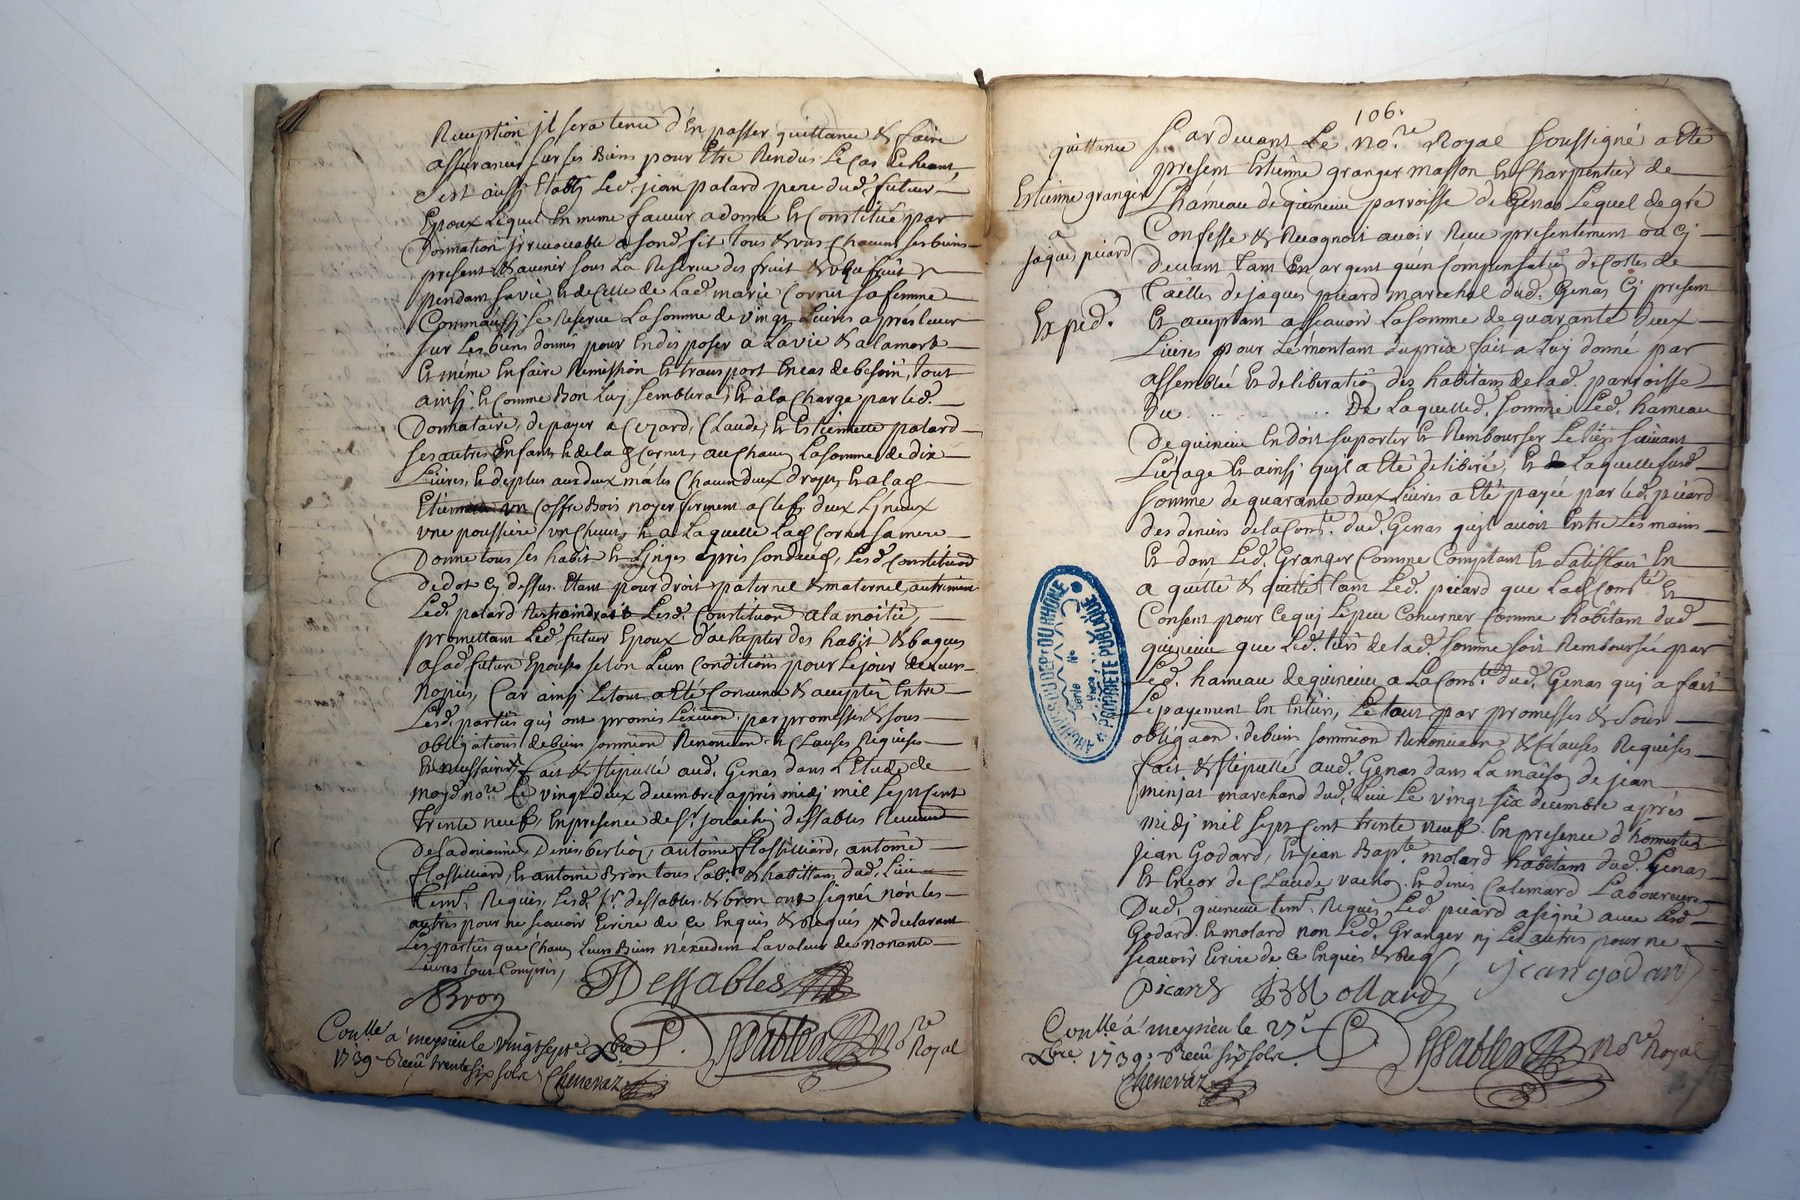 Reception jl sera tenu d'en passer quittance & faire
assurances sur ses Biens pour Etre Rendus Le Cas echeant,
C'est aussi Etably Led. jean palard pere dud. futur
Epoux Lequel En meme faveur a donné Et Constitué par
Donnation jrrevocable a sond. fit tous & uns Chacuns ses biens
present & avenir sous La Reserve des fruit & usufruit
pendant sa vie Et de Celle de Lad. marie Cornet sa femme
Comm'aussi se Reserve La somme de vingt Livres a prelever
sur Les biens donnés pour En disposer a La vie & a la mort
Et meme En faire Remission Et transport En cas de besoin, tout
ainsj Et Comme Bon Luj semblera, Et a la Charge par led.
Donnataire, de payer a Cezard, Claude, Et Estiennette palard
ses autres Enfants & de la d. Cornet, au Chacun La somme de dix
Livres, Et de plus aux deux mâles Chacun deux draps, Et a lad.
Coffre Bois noyer fermant a Clef, deux Linceux
vne poussiere, Et a Laquelle Lad. Cornet sa mere
Donne tous ses habit Et Linges apres son deces, Lesd. Constituoñ
de dot Cj dessus Etant pour droit paternel & maternel, autrement
Led. palard Restraindroit Lesd. Constituoñ a la moitié,
promettant Led. futur Epoux d'achepter des habit & bagues
a sad. future Epouse selon Leurs Conditions pour Le jour de Leurs
Nopces, Car ainsj Le tout a Eté Convenu & accepté Entre
Lesd. parties quj ont promis L'exsecuon. par promesses & sous
obligations de biens sommion Renonciaon & Clauses Requises
Et necessaires fait & stipullé aud. Genas dans L'Etude de
moyd. nore. Le vingt deux decembre apres midj mil sept sent
trente neuf, En presence de Sr. jouachin dessables
Denis berlioz, antoine flossilliard, antoine
flossilliard, Et antoine Bron tous Labrs. & habittans dud. Lieu
tems. Requis, Lesd. Sr. dessables & bron ont signé non les
autres pour ne scauoir Ecrire de Ce Enquis & Requis & declarant
Les parties que Chacun Leurs Biens n'excedent La valeur de nonante
Livres tout Compris,
Bron Dessables
Conlle. a meysieu le vingt sept. xbre P. Dessables Nore Royal
1739 Receu trente six sols Chenevaz
106.
quittance
Estienne granger
a
jaques picard
Exped.
Pardeuant Le nore. Royal soussigné a Eté
present Estienne granger masson Et Charpentier de
L'hameau de quincieu parroisse de Genas Lequel de gré
Confesse & Recognoit auoir Receu presentement ou Cj
deuant tant En argent qu'en Compensation de Cottes de
tailles de jaques picard marechal dud. Genas Cj present
Et acceptant a sçauoir La somme de quarante deux
Livres pour Le montant du prix fait a Luy donné par
assemblée Et deliberation des habitans de lad. parroisse
du . . . . . . De Laquelled. somme Led. hameau
De quincieu En doit suporter Et Rembourser Le tiers suivant
L'usage Et ainsj qu'jl a Eté deliberé, Et Laquelle susd.
somme de quarante deux Livres a Eté payée par led. picard
des deniers de la Comté. dud. Genas qu'jl auoit Entre Les mains
Et dont Led. Granger Comme Comptant Et satisfait En
a quitté & quitte tant Led. picard que Lad. Comté. Et
Consent pour Ce quj Le peu Concerner Comme habitant dud.
quincieu que Led. tiers de lad. somme soit Remboursée par
Led. hameau de quincieu a La Comté. dud. Genas quj a fait
Le payement En Entier, Le tout par promesses & sous
obligaon. de biens sommion Renonciaon & Clauses Requises
fait & stipullé aud. Genas dans La maison de jean
minjat marchand dud. Lieu Le vingt six decembre apres
midj mil sept sent trente neuf En presence d'honnestes
jean Godard, Et jean Bapte. molard habitans dud. Genas
Et Encor de Claude vachon & denis Calemard Laboureurs
Dud. quincieu tems. Requis, Led. picard a signé avec Lesd.
Godard & molard non Led. Granger nj Les autres pour ne
scauoir Ecrire de Ce Enquis & Req.
jean godard
Picard JB Mollard
ARCHIVES DU DEPt DU RHONE
Serie
No
PROPRIETE PUBLIQUE
Conlle. a meysieu le 27e. P. Dessables Nore Royal
xbre. 1739. Receu six sols.
Chenevaz